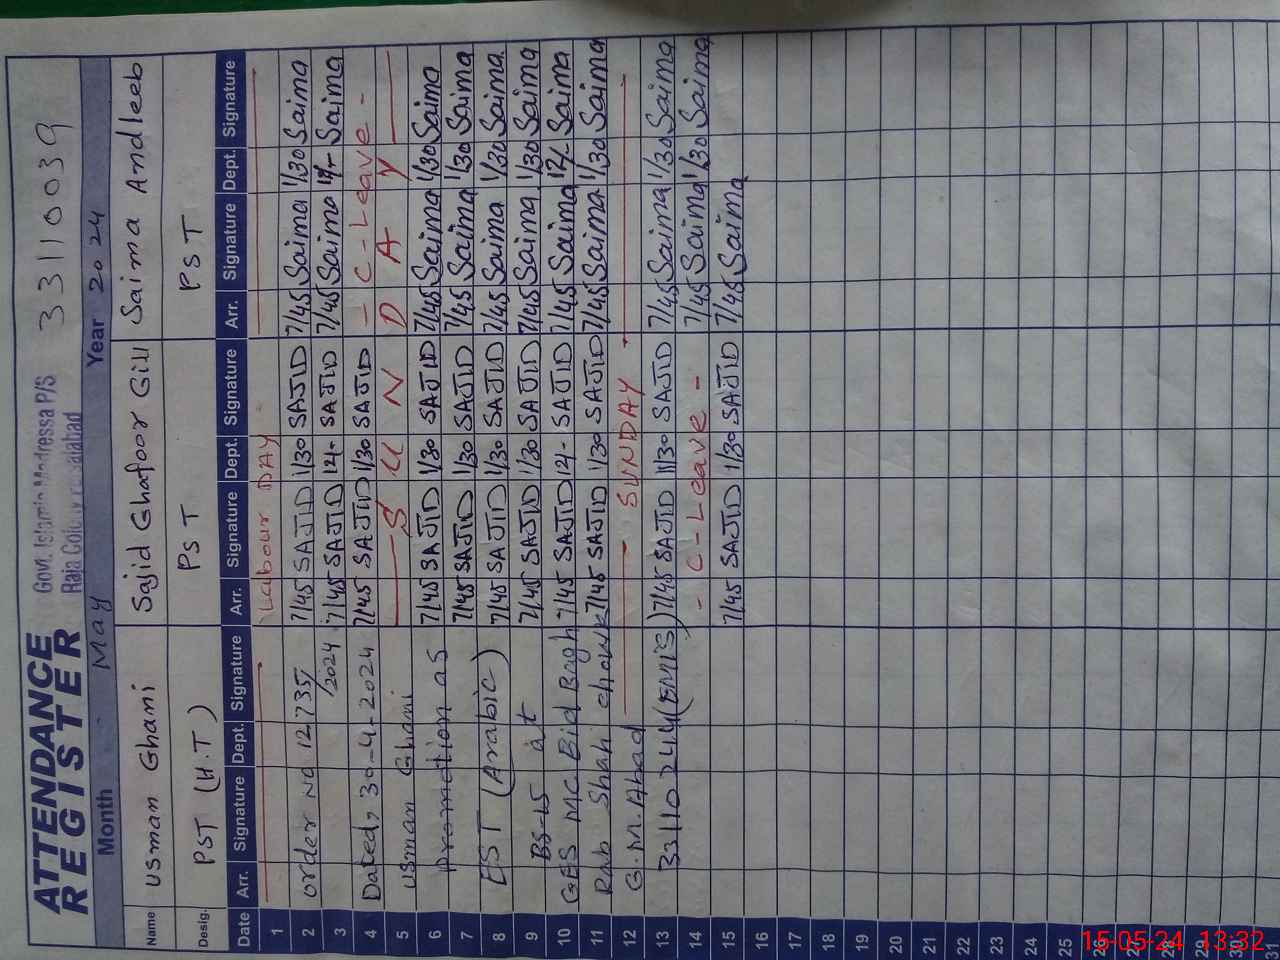 ATTENDANCE REGISTER
Govt. Islamia Madressa P/S
Raja Colony Faisalabad
33110039
Month May Year 2024
Name Usman Ghani Sajid Ghafoor Gill Saima Andleeb
Desig. PST (H.T) PST PST
Date Arr. Signature Dept. Signature Arr. Signature Dept. Signature Arr. Signature Dept. Signature
1 Labour DAY
2 order No 12735/ 7/45 SAJID 1/30 SAJID 7/45 Saima 1/30 Saima
3 /2024 7/45 SAJID 12/- SAJID 7/45 Saima 12/- Saima
4 Dated, 30-4-2024 7/45 SAJID 1/30 SAJID - C-Leave -
5 Usman Ghani S U N D A Y
6 Promotion as 7/45 SAJID 1/30 SAJID 7/45 Saima 1/30 Saima
7 7/45 SAJID 1/30 SAJID 7/45 Saima 1/30 Saima
8 EST (Arabic) 7/45 SAJID 1/30 SAJID 7/45 Saima 1/30 Saima
9 BS-15 at 7/45 SAJID 1/30 SAJID 7/45 Saima 1/30 Saima
10 GES MC Eid Bagh 7/45 SAJID 12/- SAJID 7/45 Saima 12/- Saima
11 Rab Shah chowk 7/45 SAJID 1/30 SAJID 7/45 Saima 1/30 Saima
12 G.M.Abad SUNDAY
13 33110244 (EMIS) 7/45 SAJID 1/30 SAJID 7/45 Saima 1/30 Saima
14 - C-Leave - 7/45 Saima 1/30 Saima
15 7/45 SAJID 1/30 SAJID 7/45 Saima
16
17
18
19
20
21
22
23
24
25
26
27
28
29
30
31
15-05-24 13:32